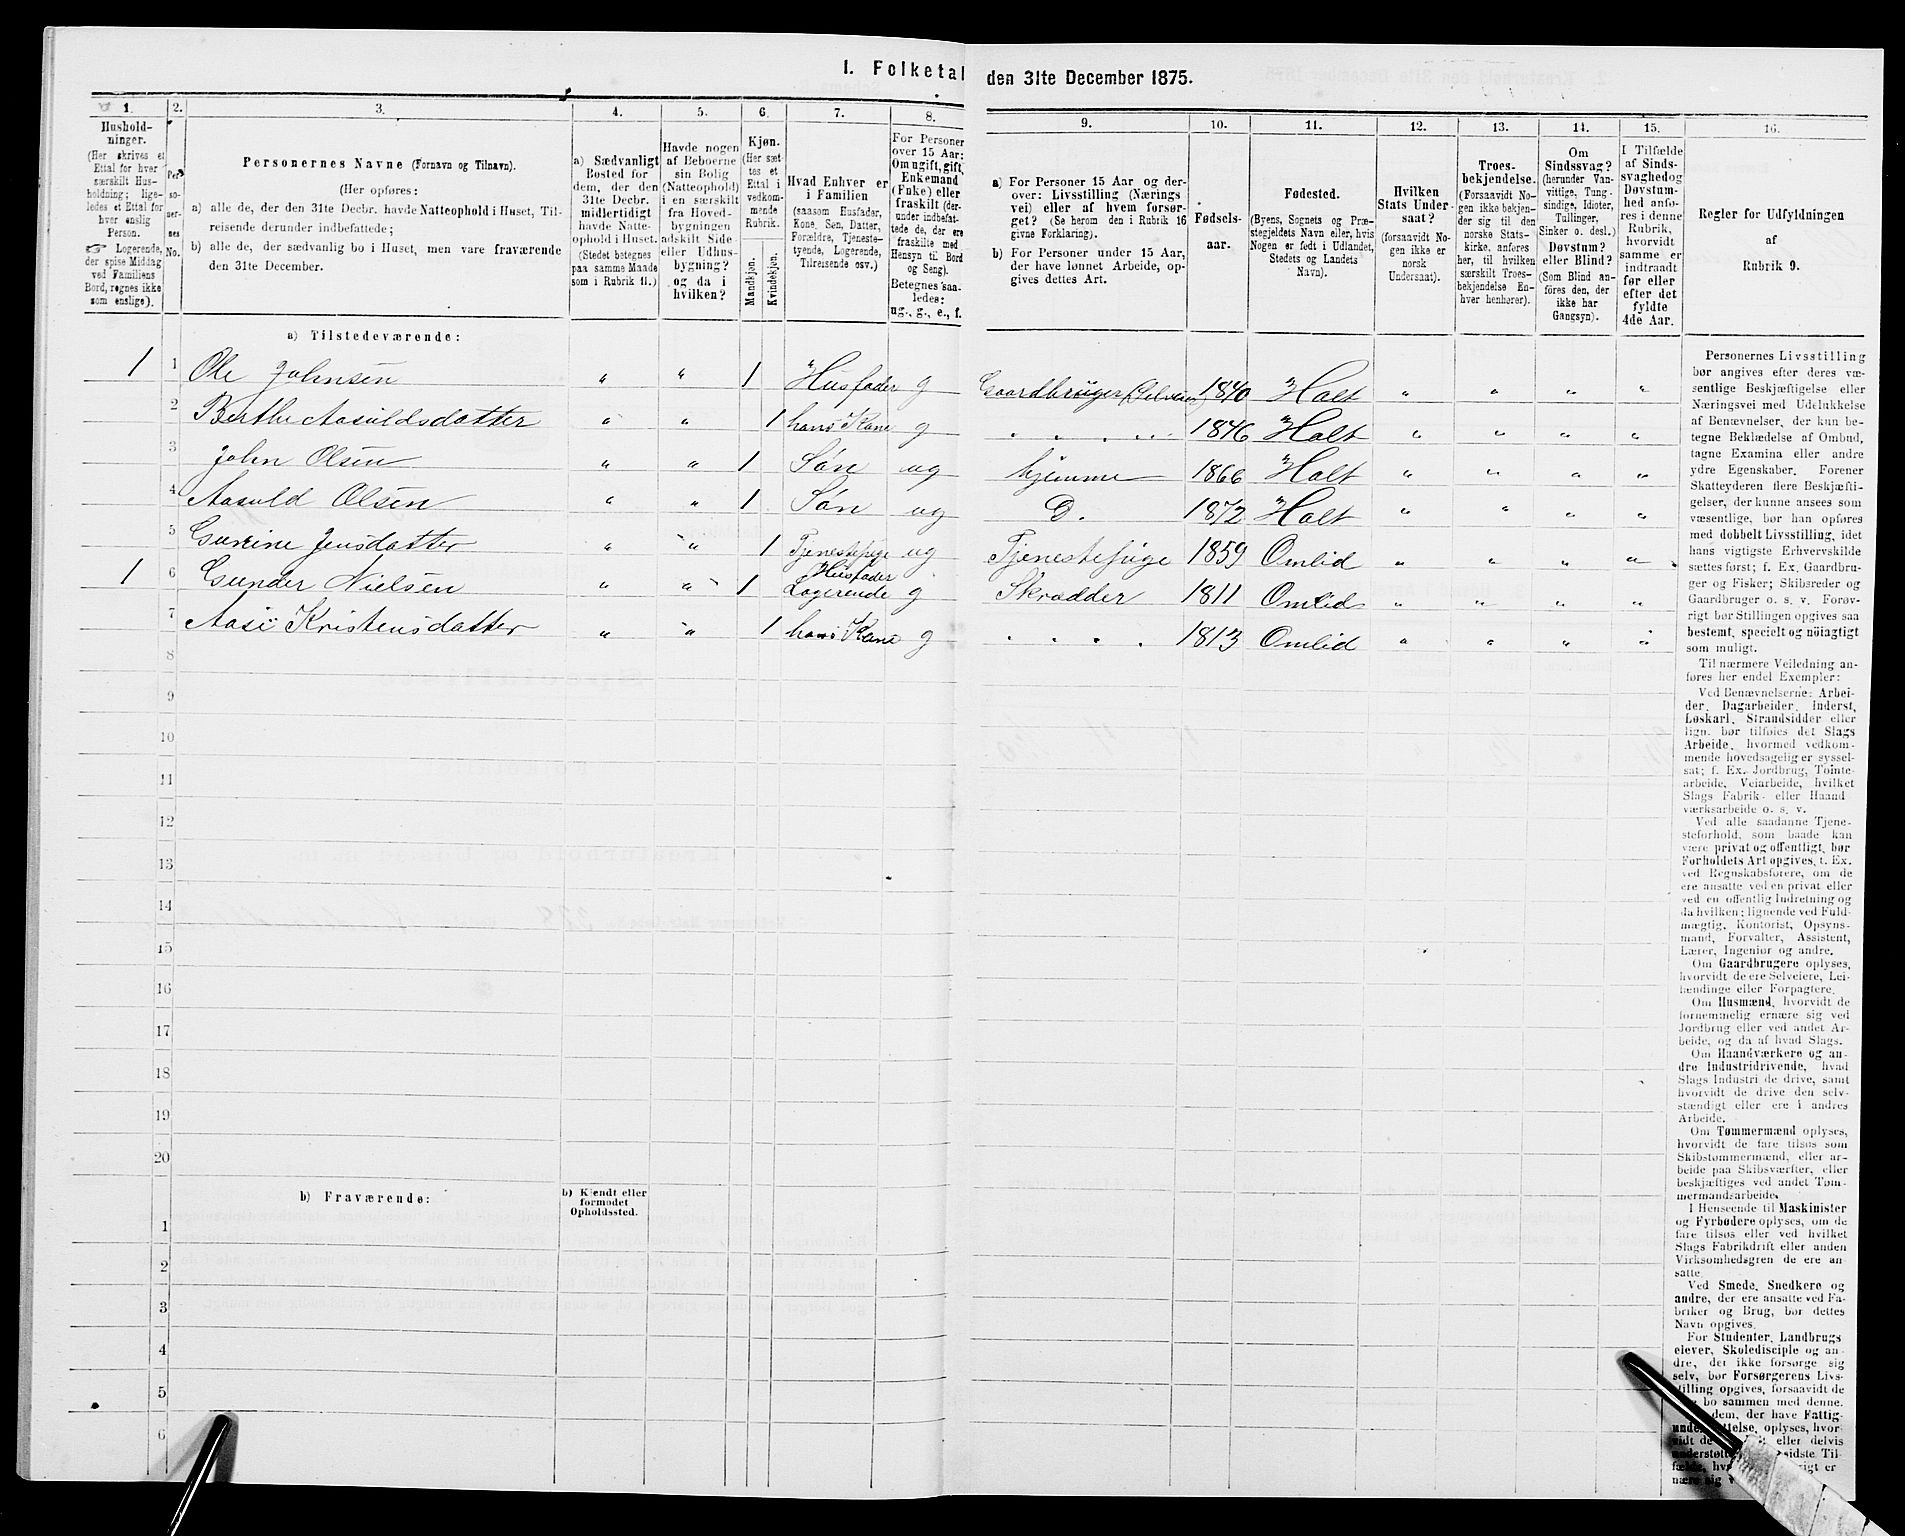 I. Folketal den 31te December 1875.
1. 2. 3. 4. 5. 6. 7. 8. 9. 10. 11. 12. 13. 14. 15. 16.
Hushold-
ninger.
(Her skrives et
Ettal for hver
særskilt Hus-
holdning; lige-
ledes et Ettal for
hver enslig
Person.
☞ Logerende,
der spise Middag
ved Familiens
Bord, regnes ikke
som enslige).
Per-
so-
ner-
nes
No.
Personernes Navne (Fornavn og Tilnavn).
(Her opføres:
a) alle de, der den 31te Decbr. havde Natteophold i Huset, Til-
reisende derunder indbefattede;
b) alle de, der sædvanlig bo i Huset, men vare fraværende
den 31te December.
a) Sædvanligt
Bosted for
dem, der den
31te Decbr.
midlertidigt
havde Natte-
ophold i Huset.
(Stedet betegnes
paa samme Maade
som i Rubrik 11.)
Havde nogen
af Beboerne
sin Bolig
(Natteophold)
i en særskilt
fra Hoved-
bygningen
adskilt Side-
eller Udhus-
bygning?
og da i
hvilken?
Kjøn.
(Her sæt-
tes et
Ettal i
vedkom-
mende
Rubrik.
Mandkjøn.
Kvindekjøn.
Hvad Enhver er
i Familien
(saasom Husfader,
Kone, Søn, Datter,
Forældre, Tjeneste-
tyende, Logerende,
Tilreisende osv.)
For Personer
over 15 Aar:
Om ugift, gift,
Enkemand
(Enke) eller
fraskilt (der-
under indbefat-
tede de, der ere
fraskilte med
Hensyn til Bord
og Seng).
Betegnes saa-
ledes:
ug., g., e., f.
a) For Personer 15 Aar og der-
over: Livsstilling (Nærings
vei) eller af hvem forsør-
get? (Se herom den i Rubrik 16
givne Forklaring).
b) For Personer under 15 Aar,
der have lønnet Arbeide, op-
gives dettes Art.
Fødsels-
aar.
Fødested.
(Byens, Sognets og Præ-
stegjeldets Navn eller, hvis
Nogen er født i Udlandet,
Stedets og Landets
Navn).
Hvilken
Stats Under-
saat?
(forsaavidt No-
gen ikke er
norsk
Undersaat).
Troes-
bekjendelse.
(Forsaavidt No-
gen ikke bekjen-
der sig til den
norske Stats-
kirke, anføres
her, til hvilken
særskilt Troes-
bekjendelse En-
hver henhører).
Om
Sindssvag?
(herunder Van-
vittige, Tung-
sindige, Idioter,
Tullinger,
Sinker o. desl.)
Døvstum?
eller Blind?
(Som Blind an-
føres den, der
ikke har
Gangsyn).
I Tilfælde
af Sinds-
svaghed og
Døvstum-
hed anfø-
res i denne
Rubrik,
hvorvidt
samme er
indtraadt
før eller
efter det
fyldte
4de Aar.
Regler for Udfyldningen
af
Rubrik 9.
a) Tilstedeværende:
1 1 Ole Johnsen " " 1 Husfader g Gaardbruger (Selveier) 1840 Holt " " " "
2 Berthe Aasuldsdatter " " 1 hans Kone g . . . . . 1846 Holt " " " "
3 John Olsen " " 1 Søn ug hjemme 1866 Holt " " " "
4 Aasuld Olsen " " 1 Søn ug D. 1872 Holt " " " "
5 Jensdatter " " 1 Tjenestepige ug Tjenestepige 1859 Omlid " " " "
1 6 Gunder Nielsen " " 1 Husfader Logerende g Skrædder 1811 Omlid " " " "
7 Kristensdatter " " 1 hans Kone g . . . . 1813 Omlid " " " "
8
9
10
11
12
13
14
15
16
17
18
19
20
b) Fraværende:
b) Kjendt eller
formodet
Opholdssted.
1
2
3
4
5
6
Personernes Livsstilling
bør angives efter deres væ-
sentlige Beskjæftigelse eller
Næringsvei med Udelukkelse
af Benævnelser, der kun be-
tegne Beklædelse af Ombud,
tagne Examina eller andre
ydre Egenskaber. Forener
Skatteyderen flere Beskjæfti-
gelser, der kunne ansees som
væsentlige, bør han opføres
med dobbelt Livsstilling, idet
hans vigtigste Erhvervskilde
sættes først; f. Ex. Gaardbru-
ger og Fisker; Skibsreder og
Gaardbruger o. s. v. Forøv-
rigt bør Stillingen opgives saa
bestemt, specielt og nøiagtigt
som muligt.
Til nærmere Veiledning an-
føres her endel Exempler:
Ved Benævnelserne: Arbei-
der, Dagarbeider, Inderst,
Løskarl, Strandsidder eller
lign. bør tilføies det Slags
Arbeide, hvormed vedkom-
mende hovedsagelig er syssel-
sat; f. Ex. Jordbrug, Tomte-
arbeide, Veiarbeide, hvilket
Slags Fabrik- eller Haand
værksarbeide o. s. v.
Ved alle saadanne Tjene-
steforhold, som baade kan
være privat og offentligt, bør
Forholdets Art opgives, f. Ex.
ved Regnskabsførere, om de
ere ansatte ved en privat eller
ved en offentlig Indretning og
da hvilken; lignende ved Fuld-
mægtig, Kontorist, Opsyns-
mand, Forvalter, Assistent,
Lærer, Ingeniør og andre.
Om Gaardbrugere oplyses,
hvorvidt de ere Selveiere, Lei-
lændinge eller Forpagtere.
Om Husmænd, hvorvidt de
fornemmelig ernære sig ved
Jordbrug eller ved andet Ar-
beide, og da af hvad Slags.
Om Haandværkere og an-
dre Industridrivende, hvad
Slags Industri de drive, samt
hvorvidt de drive den selv-
stændigt eller ere i andres
Arbeide.
Om Tømmermænd oplyses,
hvorvidt de fare tilsøs som
Skibstømmermænd, eller ar-
beide paa Skibsværfter, eller
beskjæftiges ved andet Tøm-
mermandsarbeide.
I Henseende til Maskinister
og Fyrbødere oplyses, om de
fare tilsøs eller ved hvilket
Slags Fabrikdrift eller anden
Virksomhedsgren de ere an-
satte.
Ved Smede, Snedkere og
andre, der ere ansatte ved Fa-
briker og Brug, bør dettes
Navn opgives.
For Studenter, Landbrugs
elever, Skoledisciple og an-
dre, der ikke forsørge sig
selv, bør Forsørgerens Livs-
stilling opgives, forsaavidt de
bo sammen med denne.
dem, der have Fattig-
oplyses, hvor-
vidt de eller delvis